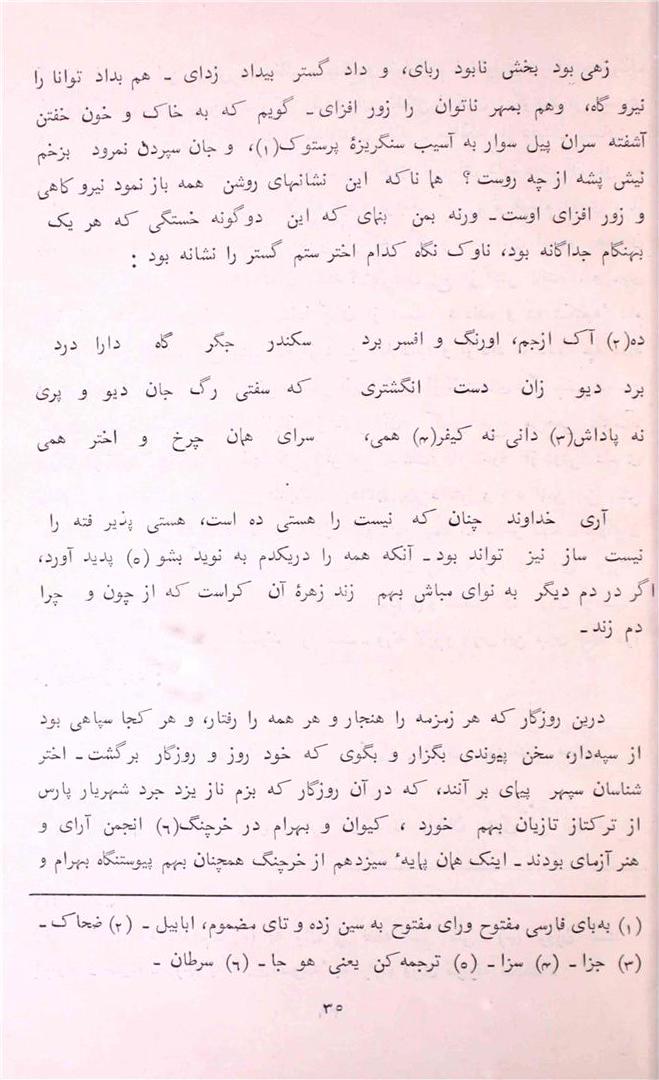 زهی بود بخش نابود ربای، و داد گستر بیداد زدای ـ هم بداد توانا را
نیرو گاه، وهم بمهر ناتوان را زور افزای ـ گویم که به خاک و خون خفتن
آشفته سران پیل سوار به آسیب سنگریزهٔ پرستوک(۱)، و جان سپردن نمرود بزخم
نیش پشه از چه روست؟ هما ناکه این نشانهای روشن همه باز نمود نیرو کاهی
و زور افزای اوست ـ ورنه بمن بنمای که این دوگونه خستگی که هر یک
بهنگام جداگانه بود، ناوک نگاه کدام اختر ستم گستر را نشانه بود :
ده(۲) آک ازجم، اورنگ و افسر برد سکندر جگر گاه دارا درد
برد دیو زان دست انگشتری که سفتی رگ جان دیو و پری
نه پاداش(۳) دانی نه کیفر(۴) همی، سرای همان چرخ و اختر همی
آری خداوند چنان که نیست را هستی ده است، هستی پذیر فته را
نیست ساز نیز تواند بود ـ آنکه همه را دریکدم به نوید بشو (۵) پدید آورد،
اگر در دم دیگر به نوای مباش بهم زند زهرهٔ آن کراست که از چون و چرا
دم زند ـ
درین روزگار که هر زمزمه را هنجار و هر همه را رفتار، و هر کجا سپاهی بود
از سپه‌دار، سخن پیوندی بگزار و بگوی که خود روز و روزگار برگشت ـ اختر
شناسان سپهر پیمای بر آنند، که در آن روزگار که بزم ناز یزد جرد شهریار پارس
از ترکتاز تازیان بهم خورد ، کیوان و بهرام در خرچنگ(۶) انجمن آرای و
هنر آزمای بودند ـ اینک همان پایهٔ سیزدهم از خرچنگ همچنان بهم پیوستنگاه بهرام و
(۱) به‌بای فارسی مفتوح ورای مفتوح به سین زده و تای مضموم، ابابیل ـ (۲) ضحاک ـ
(۳) جزا ـ (۴) سزا ـ (۵) ترجمه‌کن یعنی هو جا ـ (۶) سرطان ـ
۳۵